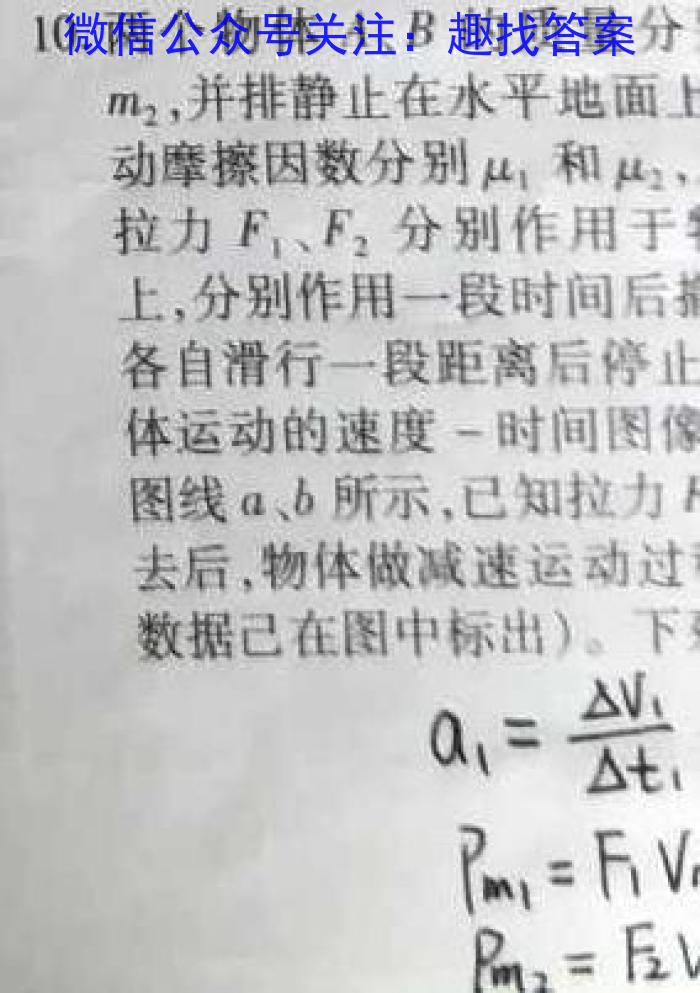 微信公众号关注：趣找答案
10 B 分
m₂,并排静止在水平地面上
动摩擦因数分别 μ₁ 和 μ₂,
拉力 F₁、F₂ 分别作用于
上,分别作用一段时间后
各自滑行一段距离后停止
体运动的速度－时间图像
图线 a、b 所示,已知拉力
去后,物体做减速运动过
数据己在图中标出)。下
a₁ = ΔV₁/Δt₁
Pm₁ = F₁V
Pm₂ = F₂V